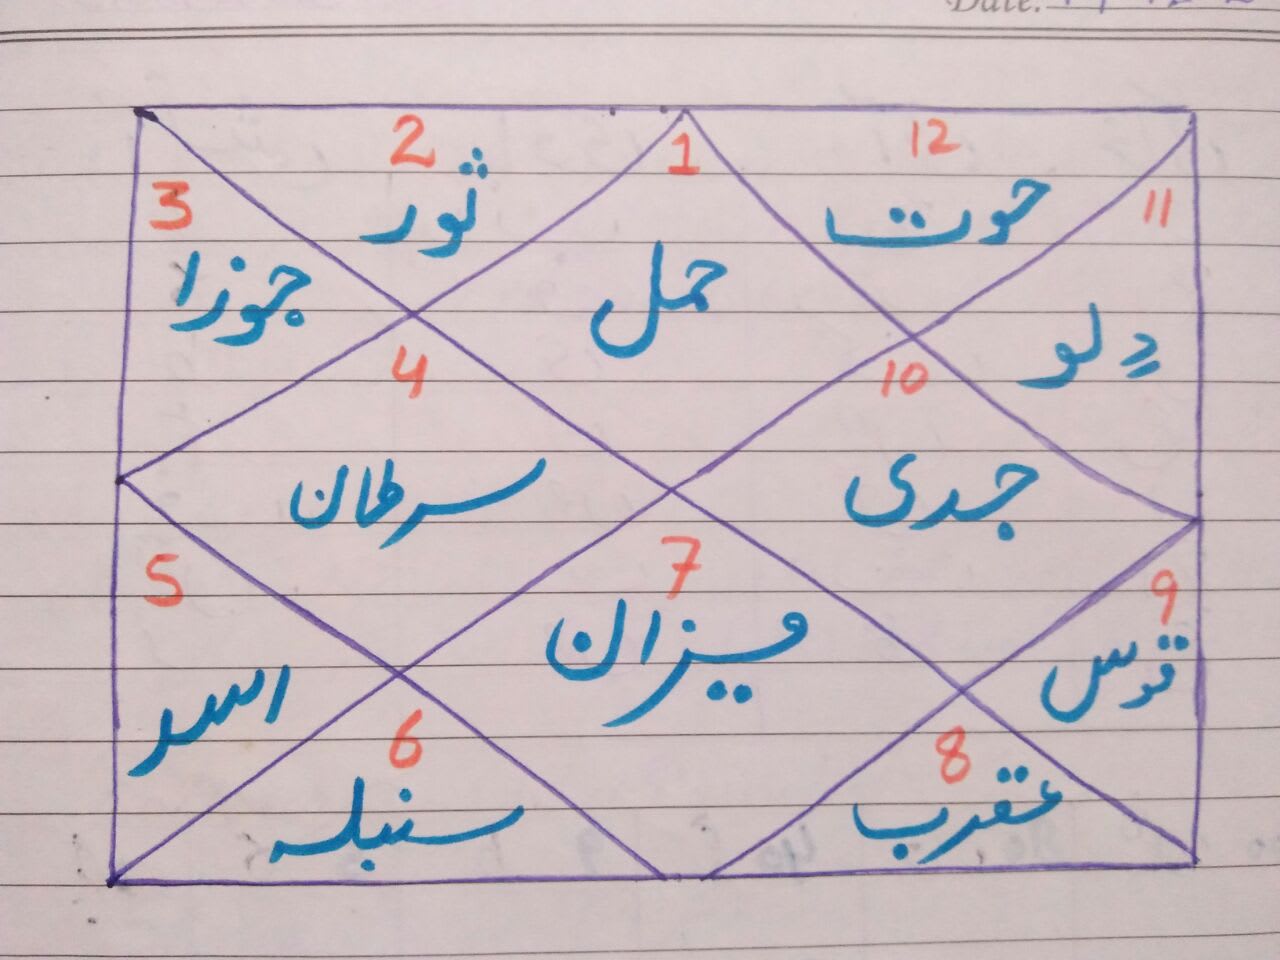 Date:
2
1
12
3
11
ثور
حوت
جوزا
حمل
دلو
4
10
سرطان
جدی
5
7
9
میزان
قوس
اسد
6
8
سنبلہ
عقرب